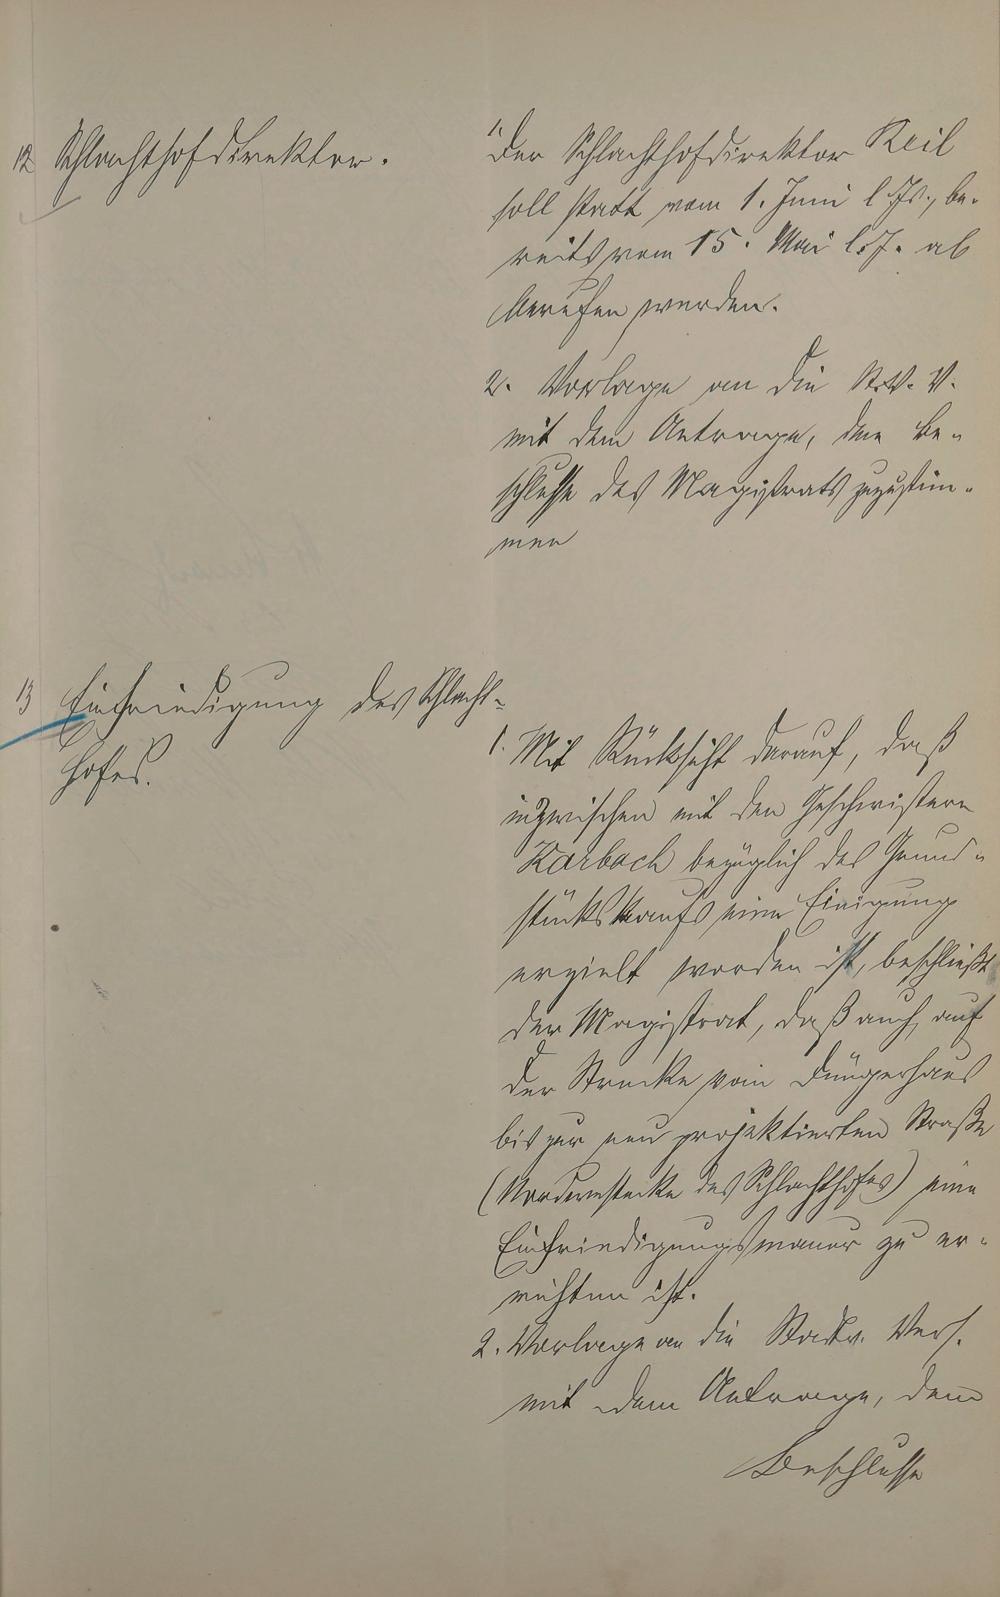 12 Schlachthofdirektor.
1. Der Schlachthofdirektor Keil
soll statt vom 1. Juni l. Js., be-
reits vom 15. Mai l. J. ab
berufen werden.
2. Vorlage an die St. V. V.
mit dem Antrage, dem Be-
schlusse des Magistrats zuzustim-
men
13 Einfriedigung des Schlacht-
hofes.
1. Mit Rücksicht darauf, daß
inzwischen mit den Geschwistern
Karbach bezüglich des Grund-
stückskaufs eine Einigung
erzielt worden ist, beschließt
der Magistrat, daß auch auf
der Strecke vom Düngerhaus
bis zur neu projektierten Straße
(Nordwestecke des Schlachthofes) eine
Einfriedigungsmauer zu er-
richten ist.
2. Vorlage an die Stadtv. Vers.
mit dem Antrage, dem
Beschlusse